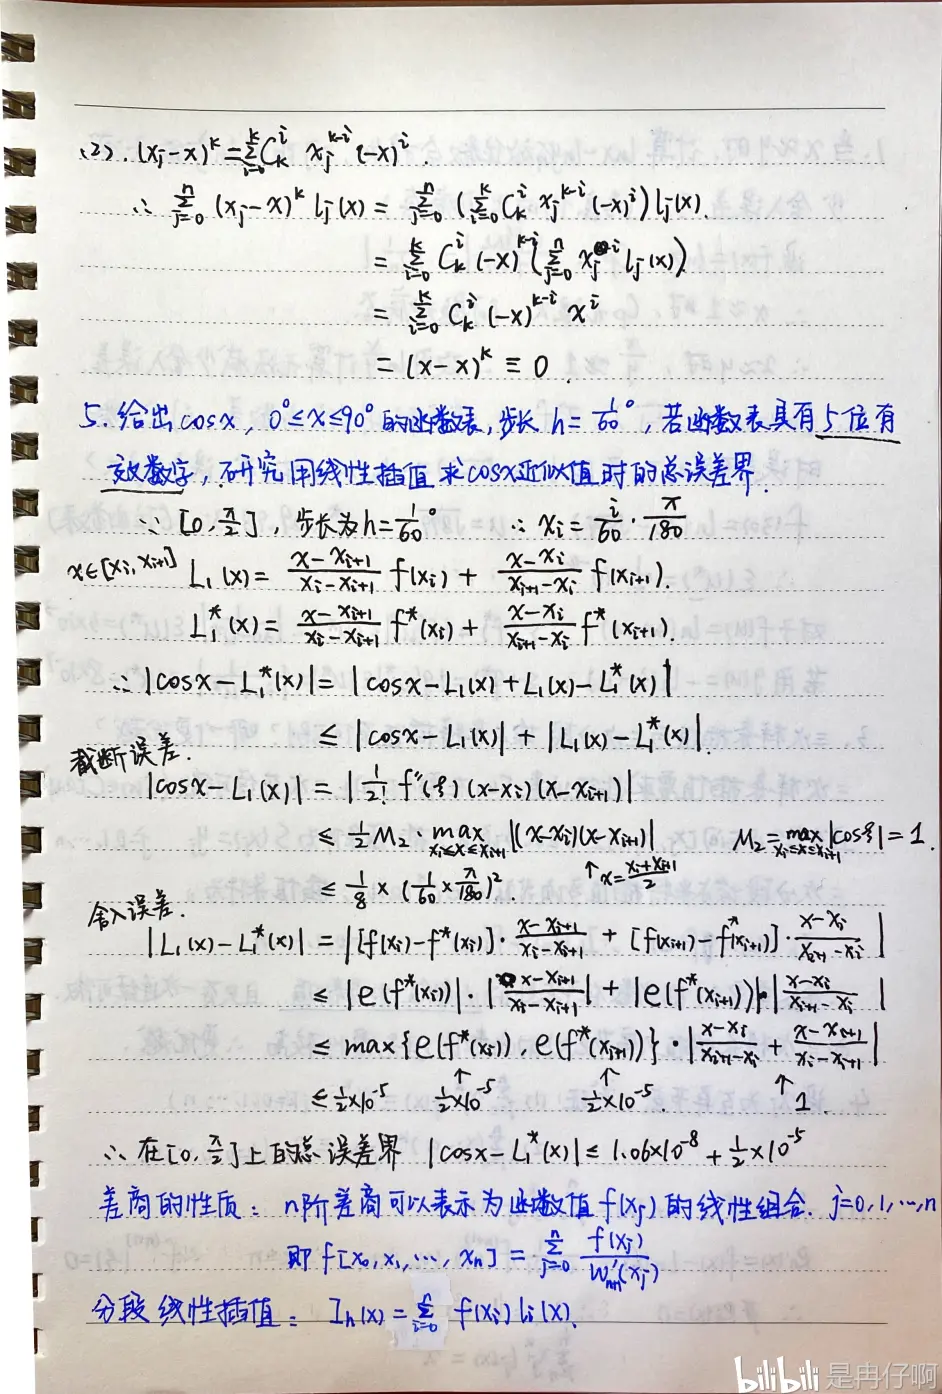 (2). (xj-x)^k = Σ_{i=0}^{k} C_k^i xj^{k-i} (-x)^i.
∴ Σ_{j=0}^{n} (xj-x)^k lj(x) = Σ_{j=0}^{n} (Σ_{i=0}^{k} C_k^i xj^{k-i} (-x)^i) lj(x).
= Σ_{i=0}^{k} C_k^i (-x)^{k-i} (Σ_{j=0}^{n} xj^i lj(x))
= Σ_{i=0}^{k} C_k^i (-x)^{k-i} x^i
= (x-x)^k ≡ 0.
5. 给出cosx, 0°≤x≤90°的函数表, 步长 h = 1/60°, 若函数表具有5位有
效数字, 研究用线性插值求cosx近似值时的总误差界.
∵ [0, π/2], 步长为h = 1/60° ∴ xi = i/60 · π/180
x∈[xi, xi+1] L1(x) = (x-xi+1)/(xi-xi+1) f(xi) + (x-xi)/(xi+1-xi) f(xi+1).
L1*(x) = (x-xi+1)/(xi-xi+1) f*(xi) + (x-xi)/(xi+1-xi) f*(xi+1).
∴ |cosx-L1*(x)| = |cosx-L1(x)+L1(x)-L1*(x)|
≤ |cosx-L1(x)| + |L1(x)-L1*(x)|.
截断误差.
|cosx-L1(x)| = |1/2! f''(ξ)(x-xi)(x-xi+1)|
≤ 1/2 M2 · max_{xi≤x≤xi+1} |(x-xi)(x-xi+1)| M2 = max_{xi≤x≤xi+1} |cosξ| = 1.
≤ 1/8 × (1/60 × π/180)². ↑ x = (xi+xi+1)/2
舍入误差.
|L1(x)-L1*(x)| = |[f(xi)-f*(xi)] · (x-xi+1)/(xi-xi+1) + [f(xi+1)-f*(xi+1)] · (x-xi)/(xi+1-xi)|
≤ |e(f*(xi))| · |(x-xi+1)/(xi-xi+1)| + |e(f*(xi+1))| · |(x-xi)/(xi+1-xi)|
≤ max{e(f*(xi)), e(f*(xi+1))} · |(x-xi)/(xi+1-xi) + (x-xi+1)/(xi-xi+1)|
≤ 1/2×10^-5 ↑ 1/2×10^-5 ↑ 1/2×10^-5. ↑ 1
∴ 在[0, π/2]上的总误差界 |cosx-L1*(x)| ≤ 1.06×10^-8 + 1/2×10^-5
差商的性质: n阶差商可以表示为函数值 f(xj) 的线性组合. j=0,1,…,n
即 f[x0, x1, …, xn] = Σ_{j=0}^{n} f(xj)/W'n+1(xj)
分段线性插值: Ih(x) = Σ_{i=0} f(xi) li(x).
bilibili 是冉仔啊